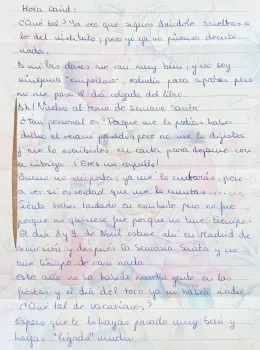 Hola David:
¿Qué tal? Ya veo que sigues dándole vueltas a
lo del instituto; pero yo ya no pienso decirte
nada.
A mí las clases me van muy bien, y no soy
ninguna "empollona", estudio para aprobar pero
no me paso el día colgada del libro.
¡Ah! Nuevo al tema de Semana Santa
¿Tan personal es? Porque me lo podías haber
dicho el verano pasado, pero no me lo dijistes
y me lo escribistes en carta para dejarme con
la intriga ¡Eres un capullo!
Bueno no importa, ya me lo contarás, pero
a ver si es verdad que me lo cuentas
Siento haber tardado en escribirte pero no fue
porque no quisiera, fue porque no tuve tiempo.
El día 8 y 9 de Abril estuve ahí en Madrid de
excursión y después la Semana Santa y no
tuve tiempo de casi nada
Este año no ha habido mucha gente en las
fiestas y el día del toro ya no había nadie
¿Qué tal de vacaciones?
Espero que te lo hayas pasado muy bien y
hayas "ligado" mucho